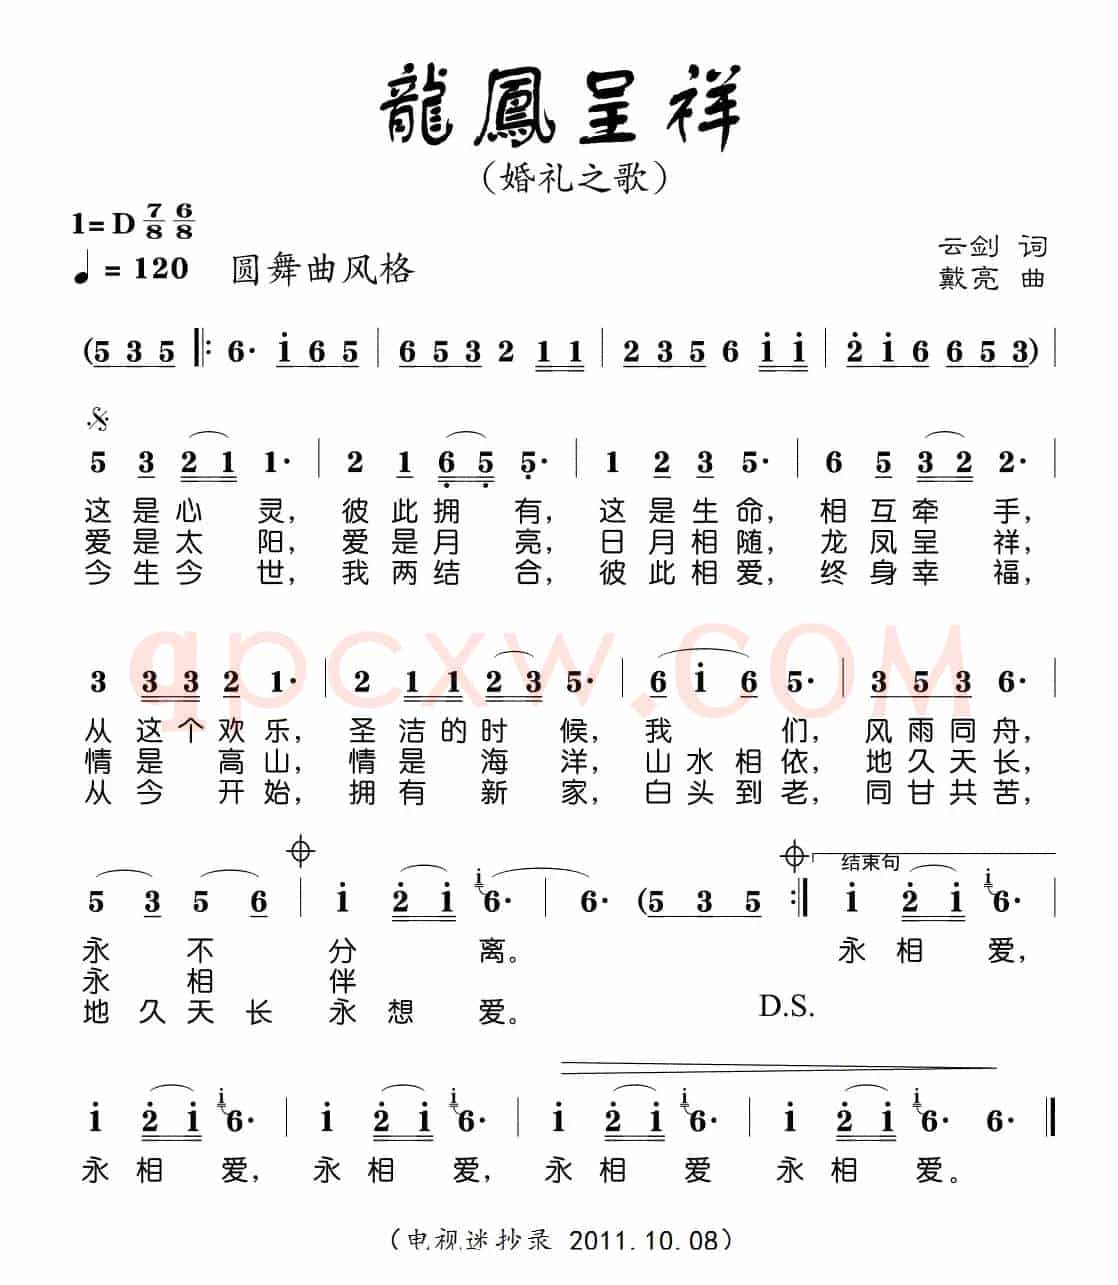 龍鳳呈祥
（婚礼之歌）
1=D 7/8 6/8
云剑 词
♩=120 圆舞曲风格
戴亮 曲
(5 3 5 |: 6· i 6 5 | 6 5 3 2 1 1 | 2 3 5 6 i i | 2 i 6 6 5 3) |
5 3 2 1 1· | 2 1 6 5 5· | 1 2 3 5· | 6 5 3 2 2· |
这是心灵，彼此拥有，这是生命，相互牵手，
爱是太阳，爱是月亮，日月相随，龙凤呈祥，
今生今世，我两结合，彼此相爱，终身幸福，
qpcxw.COM
3 3 3 2 1· | 2 1 1 2 3 5· | 6 i 6 5· | 3 5 3 6· |
从这个欢乐，圣洁的时候，我们，风雨同舟，
情是高山，情是海洋，山水相依，地久天长，
从今开始，拥有新家，白头到老，同甘共苦，
结束句
5 3 5 6 | i 2 i i 6· | 6· (5 3 5 :| i 2 i i 6· |
永不分离。永相爱，
永相伴
地久天长永想爱。
D.S.
i 2 i i 6· | i 2 i i 6· | i 2 i i 6· | i 2 i i 6· 6· |
永相爱，永相爱，永相爱 永相爱。
（电视迷抄录 2011.10.08）